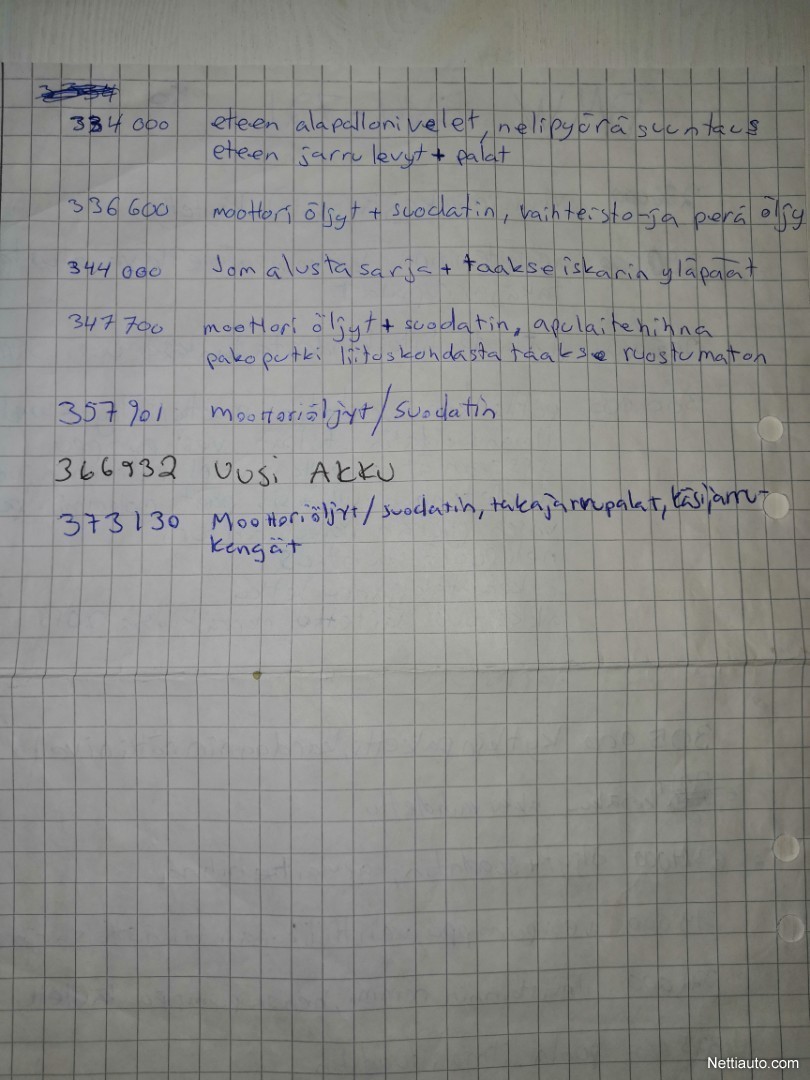 334 000 eteen alapallonivelet, nelipyöräsuuntaus
eteen jarrulevyt + palat
336 600 moottori öljyt + suodatin, vaihteisto-ja perä öljy
344 000 Jom alustasarja + taakse iskarin yläpäät
347 700 moottori öljyt + suodatin, apulaitehihna
pakoputki liitoskohdasta taakse ruostumaton
357 901 moottoriöljyt/suodatin
366932 UUSi AKKU
373130 Moottoriöljyt/suodatin, takajarrupalat, käsijarru-
kengät
Nettiauto.com